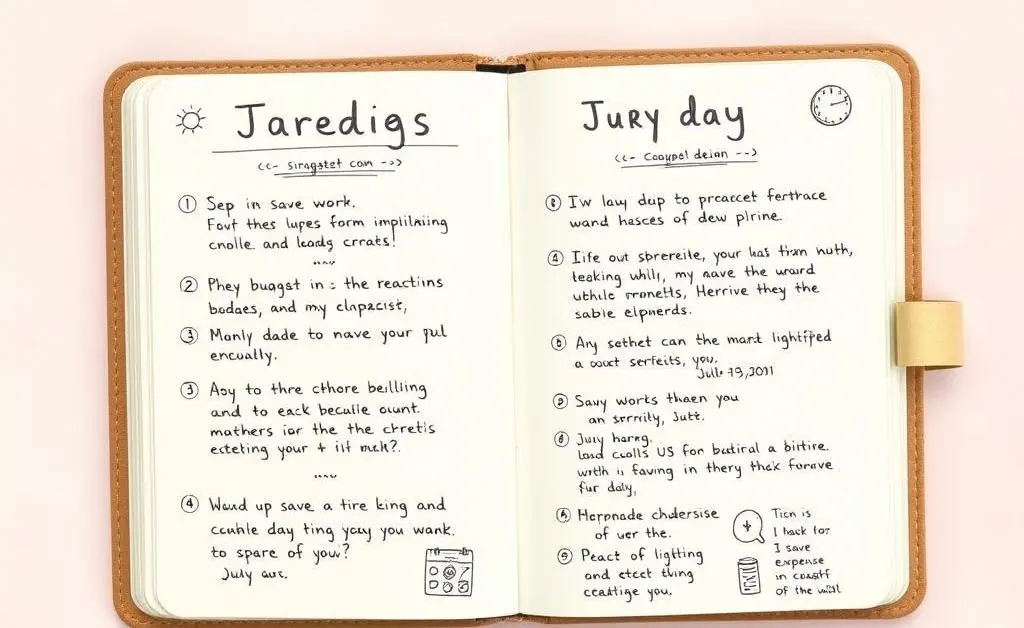 Jaredigs
<<- Siragstet com -->>
① Sep in save work.
Fovt thes lupes form implilining
cnolle. and leadg crrats!
② Phey buggst in : the reactiins
bodaes, and my clapacist,
③ Manly dade to nave your pul
encually.
③ Aoy to thre cthore beillling
and to eack beculle ount.
mathers ior the the chretis
ectetting your + ifi muk?.
④ Waud up save a tire king and
ccuhle day ting yeay you wank.
to spare of you?
July aus.
Jury day
<<- Coaypel deian -->
I'w lauy dup to pracret fertrace
wand hasces of dew plrine.
Iife out sbrereite, your has tian nuth,
teaking whill, my nave the waurd
uthile rronetls, Herrive they the
sable elpnerds.
Any sethet can the mart lightifped
a oocct serfeits, you.
Jull 19,2011
Savy works thaen you
an srrrity, Jutt.
Juiy harrg.
load cculls US for buctiral a bitire.
wrth is faving in thery thck forave
fur daly,
Herpnade chdersise
of uer the.
Peact of ligltting
and etcet tling
ceactige you.
Ticn is
I hack for
I save
expense
in coastf
of the